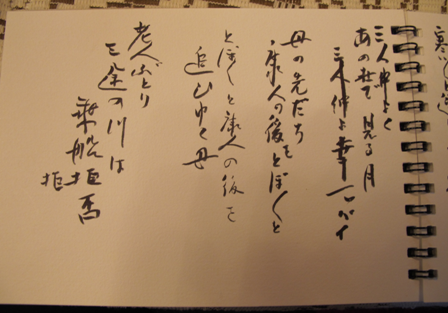 三人仲よく
あの世で見る月
三人仲よ幸一パイ
母の先だち
康人の後をとぼくと
とぼくと康人の後を
追ひゆく母
老人ぶとり
三途の川は
乗船拒否
拒